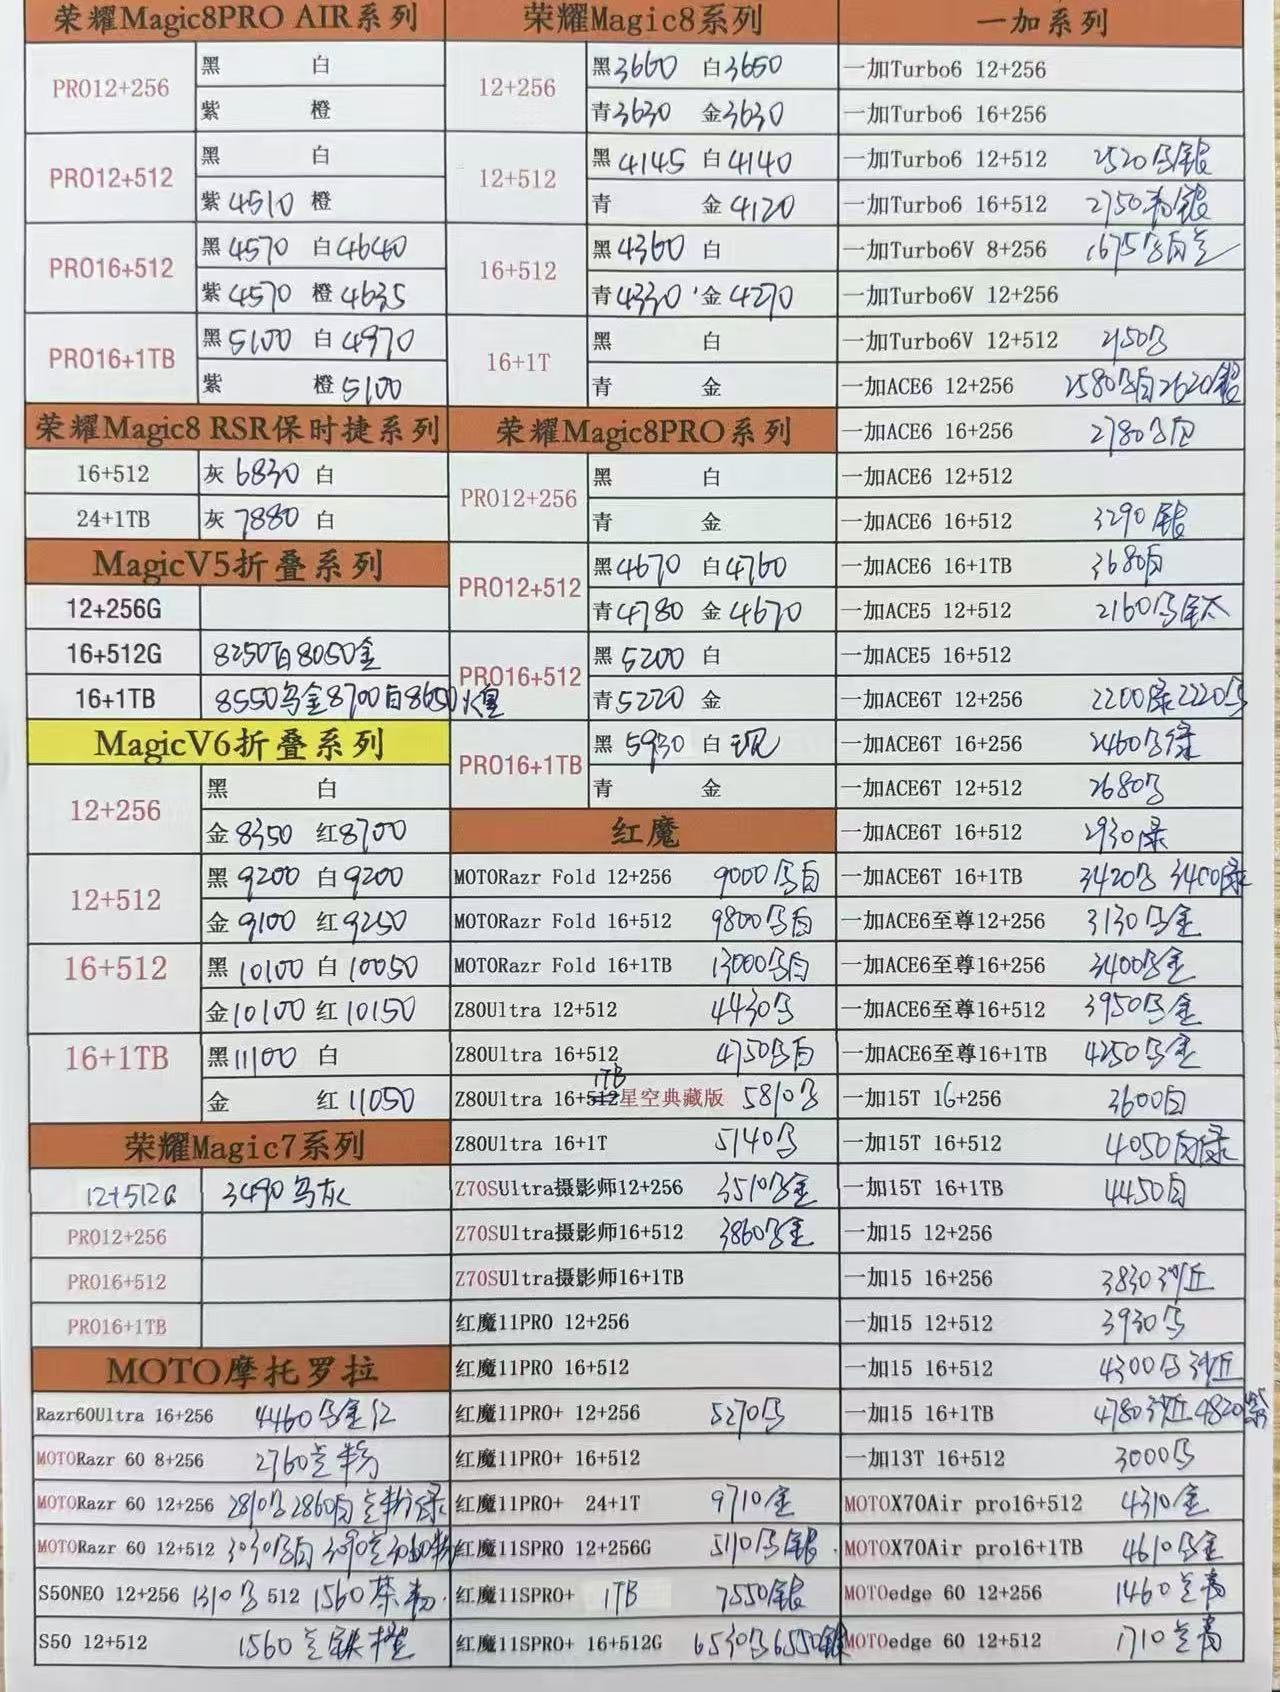 荣耀Magic8PRO AIR系列
PRO12+256 黑 白
紫 橙
PRO12+512 黑 白
紫4510 橙
PRO16+512 黑4570 白4640
紫4570 橙4635
PRO16+1TB 黑5100 白4970
紫 橙5100
荣耀Magic8 RSR保时捷系列
16+512 灰6830 白
24+1TB 灰7880 白
MagicV5折叠系列
12+256G
16+512G 8250白8050金
16+1TB 8550乌金8700白8650
MagicV6折叠系列
12+256 黑 白
金8350 红8700
12+512 黑9200 白9200
金9100 红9250
16+512 黑10100 白10050
金10100 红10150
16+1TB 黑11100 白
金 红11050
荣耀Magic7系列
12+512G 3490乌灰
PRO12+256
PRO16+512
PRO16+1TB
MOTO摩托罗拉
Razr60Ultra 16+256 4460乌金红
MOTORazr 60 8+256 2760兰粉
MOTORazr 60 12+256 2810乌2860白兰粉绿
MOTORazr 60 12+512 3030乌白3090兰3060粉
S50NEO 12+256 1310乌 512 1560茶粉
S50 12+512 1560兰银橙
荣耀Magic8系列
12+256 黑3660 白3650
青3630 金3630
12+512 黑4145 白4140
青 金4120
16+512 黑4360 白
青4330 金4270
16+1T 黑 白
青 金
荣耀Magic8PRO系列
PRO12+256 黑 白
青 金
PRO12+512 黑4670 白4760
青4780 金4670
PRO16+512 黑5200 白
青5220 金
PRO16+1TB 黑5930 白现
青 金
红魔
MOTORazr Fold 12+256 9000乌白
MOTORazr Fold 16+512 9800乌白
MOTORazr Fold 16+1TB 13000乌白
Z80Ultra 12+512 4430乌
Z80Ultra 16+512 4750乌白
Z80Ultra 16+1TB星空典藏版 5810乌
Z80Ultra 16+1T 5140乌
Z70SUltra摄影师12+256 3510乌金
Z70SUltra摄影师16+512 3860乌金
Z70SUltra摄影师16+1TB
红魔11PRO 12+256
红魔11PRO 16+512
红魔11PRO+ 12+256 5270乌
红魔11PRO+ 16+512
红魔11PRO+ 24+1T 9710金
红魔11SPRO 12+256G 5110乌银
红魔11SPRO+ 1TB 7550银
红魔11SPRO+ 16+512G 6530乌6550银
一加系列
一加Turbo6 12+256
一加Turbo6 16+256
一加Turbo6 12+512 2520乌银
一加Turbo6 16+512 2750乌银
一加Turbo6V 8+256 1675乌白兰
一加Turbo6V 12+256
一加Turbo6V 12+512 2150乌
一加ACE6 12+256 2580乌白2620银
一加ACE6 16+256 2780乌白
一加ACE6 12+512
一加ACE6 16+512 3290银
一加ACE6 16+1TB 3680白
一加ACE5 12+512 2160乌钛
一加ACE5 16+512
一加ACE6T 12+256 2200绿2220乌
一加ACE6T 16+256 2460乌绿
一加ACE6T 12+512 2680乌
一加ACE6T 16+512 2930绿
一加ACE6T 16+1TB 3420乌 3400绿
一加ACE6至尊12+256 3130乌金
一加ACE6至尊16+256 3400乌金
一加ACE6至尊16+512 3950乌金
一加ACE6至尊16+1TB 4250乌金
一加15T 16+256 3600白
一加15T 16+512 4050白绿
一加15T 16+1TB 4450白
一加15 12+256
一加15 16+256 3830沙丘
一加15 12+512 3930乌
一加15 16+512 4300乌沙丘
一加15 16+1TB 4780沙丘4820紫
一加13T 16+512 3000乌
MOTOX70Air pro16+512 4310金
MOTOX70Air pro16+1TB 4610乌金
MOTOedge 60 12+256 1460兰青
MOTOedge 60 12+512 1710兰青